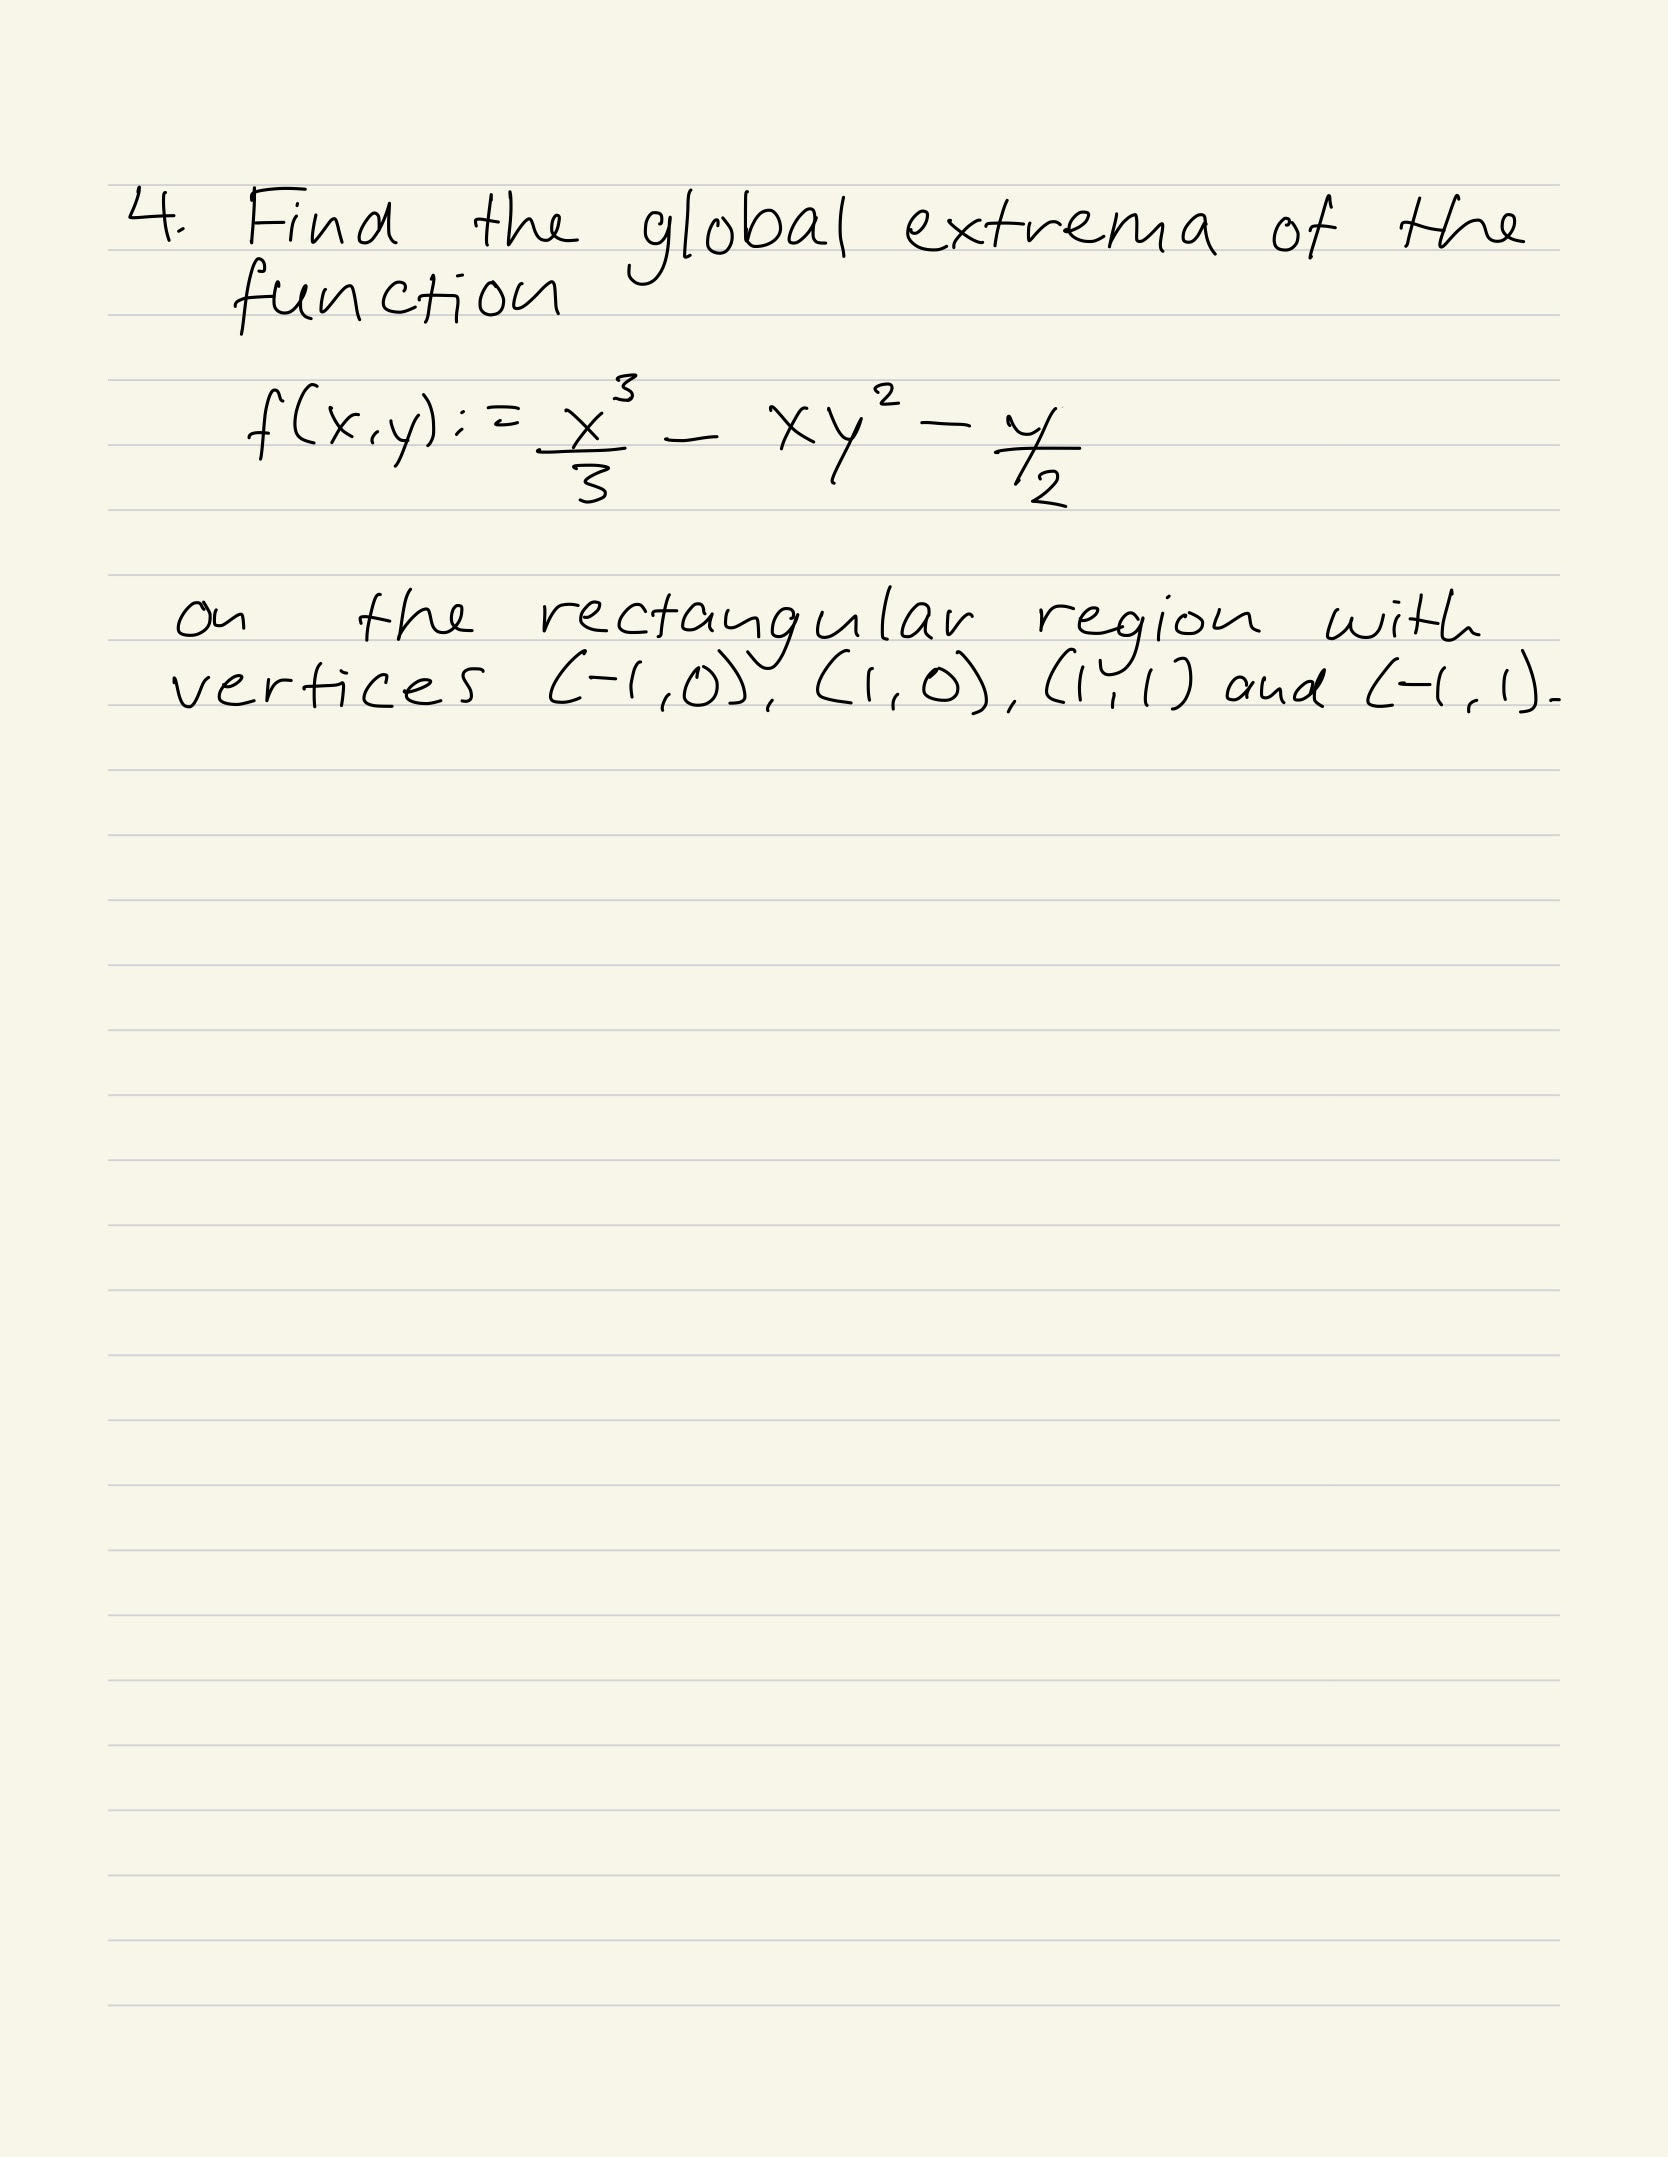 4. Find the global extrema of the
function
f(x,y) := x³/3 - xy² - y/2
on the rectangular region with
vertices (-1,0), (1,0), (1,1) and (-1,1).